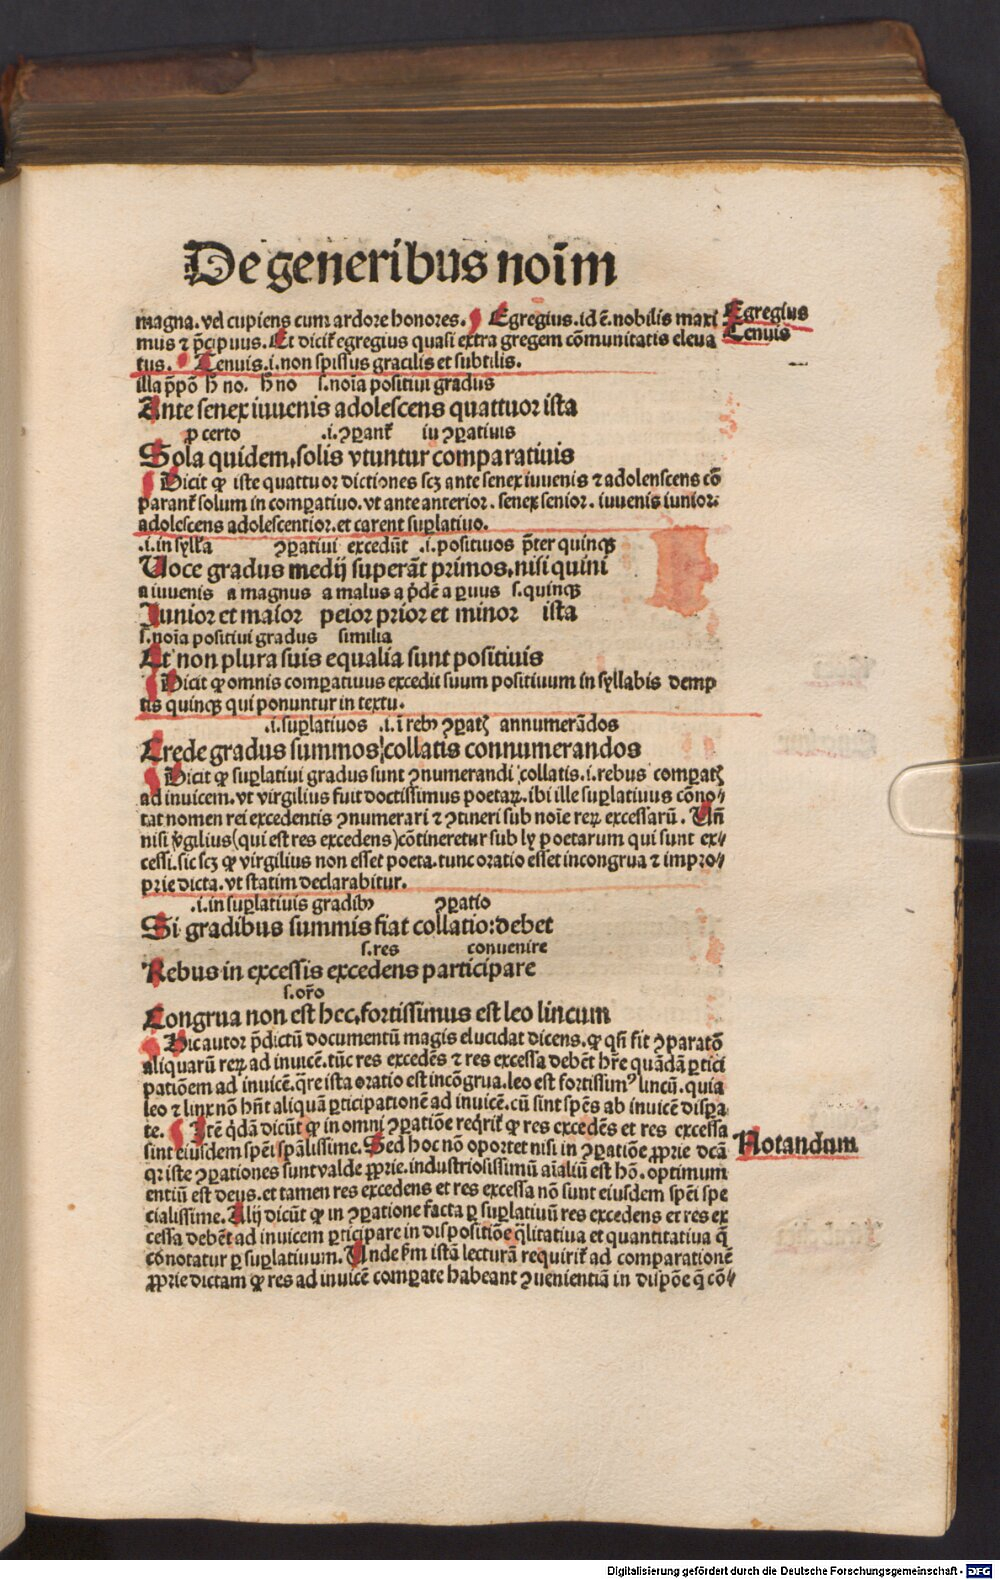 De generibus noīm
magna. vel cupiens cum ardore honores. Egregius. id ē. nobilis maxi
Egregius
mus ⁊ p̄cipuus. Et dicit᷑ egregius quasi extra gregem cōmunitatis eleua
Tenuis
tus. Tenuis .i. non spissus gracilis et subtilis.
illa p̄pō h̄ no. h̄ no s. noīa positiui gradus
Ante senex iuuenis adolescens quattuor ista
ꝓ certo .i. ꝯꝑant᷑ iu ꝯꝑatiuis
Sola quidem, solis vtuntur comparatiuis
Dicit ꝙ iste quattuor dictiones scꝫ ante senex iuuenis ⁊ adolenscens cō
parant᷑ solum in comꝑatiuo. vt ante anterior. senex senior. iuuenis iunior.
adolescens adolescentior. et carent suꝑlatiuo.
.i. in sylla ꝯꝑatiui excedūt .i. positiuos p̄ter quinqꝫ
Uoce gradus medij superāt primos, nisi quini
a iuuenis a magnus a malus a p̄dē a ꝑuus s. quinqꝫ
Junior et maior peior prior et minor ista
s. noīa positiui gradus similia
Et non plura suis equalia sunt positiuis
Dicit ꝙ omnis comꝑatiuus excedit suum positiuum in syllabis demp
tis quinqꝫ qui ponuntur in textu.
.i. suꝑlatiuos .i. ī rebꝰ ꝯꝑatꝭ annumerādos
Crede gradus summos collatis connumerandos
Dicit ꝙ suꝑlatiui gradus sunt ꝯnumerandi collatis .i. rebus comꝑatꝭ
ad inuicem. vt virgilius fuit doctissimus poetaꝝ. ibi ille suꝑlatiuus cōno⸗
tat nomen rei excedentis ꝯnumerari ⁊ ꝯtineri sub noīe reꝝ excessarū. Un̄
nisi v̓gilius (qui est res excedens) cōtineretur sub ly poetarum qui sunt ex⸗
cessi. sic scꝫ ꝙ virgilius non esset poeta. tunc oratio esset incongrua ⁊ impro⸗
prie dicta. vt statim declarabitur.
.i. in suꝑlatiuis gradibꝰ ꝯꝑatio
Si gradibus summis fiat collatio: debet
s. res conuenire
Rebus in excessis excedens participare
s. orō
Congrua non est hec, fortissimus est leo lincum
Hic autor p̄dictū documentū magis elucidat dicens. ꝙ qn̄ fit ꝯparatō
aliquarū reꝝ ad inuicē. tūc res excedēs ⁊ res excessa debēt hr̄e quādā ꝑtici
patiōem ad inuicē. q̄re ista oratio est incōgrua. leo est fortissimꝰ lincū. quia
leo ⁊ linx nō hn̄t aliquā ꝑticipationē ad inuicē. cū sint sp̄es ab inuicē dispa
te. Itē q̇dā dicūt ꝙ in omni ꝯꝑatiōe req̇rit᷑ ꝙ res excedēs et res excessa
sint eiusdem sp̄ei sp̄alissime. Sed hoc nō oportet nisi in ꝯꝑatiōe ꝓprie dcā
Notandum
qꝛ iste ꝯꝑationes sunt valde ꝓprie. industriosissimū aīaliū est hō. optimum
entiū est deus. et tamen res excedens et res excessa nō sunt eiusdem sp̄ei spe
cialissime. Alij dicūt ꝙ in ꝯꝑatione facta ꝑ suꝑlatiuū res excedens et res ex
cessa debēt ad inuicem ꝑticipare in dispositiōe q̄litatiua et quantitatiua q̄
cōnotatur ꝑ suꝑlatiuum. Unde ẜm istā lecturā requirit᷑ ad comparationē
ꝓprie dictam ꝙ res ad inuicē comꝑate habeant ꝯuenientiā in disp̄ōe q̄ cō⸗
Digitalisierung gefördert durch die Deutsche Forschungsgemeinschaft - DFG